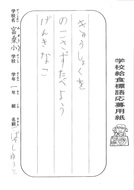 学校給食標語応募用紙
きゅうしょくを
のこさずたべよう
げんきなこ
学校名
小学校
学年
一年
組
名前